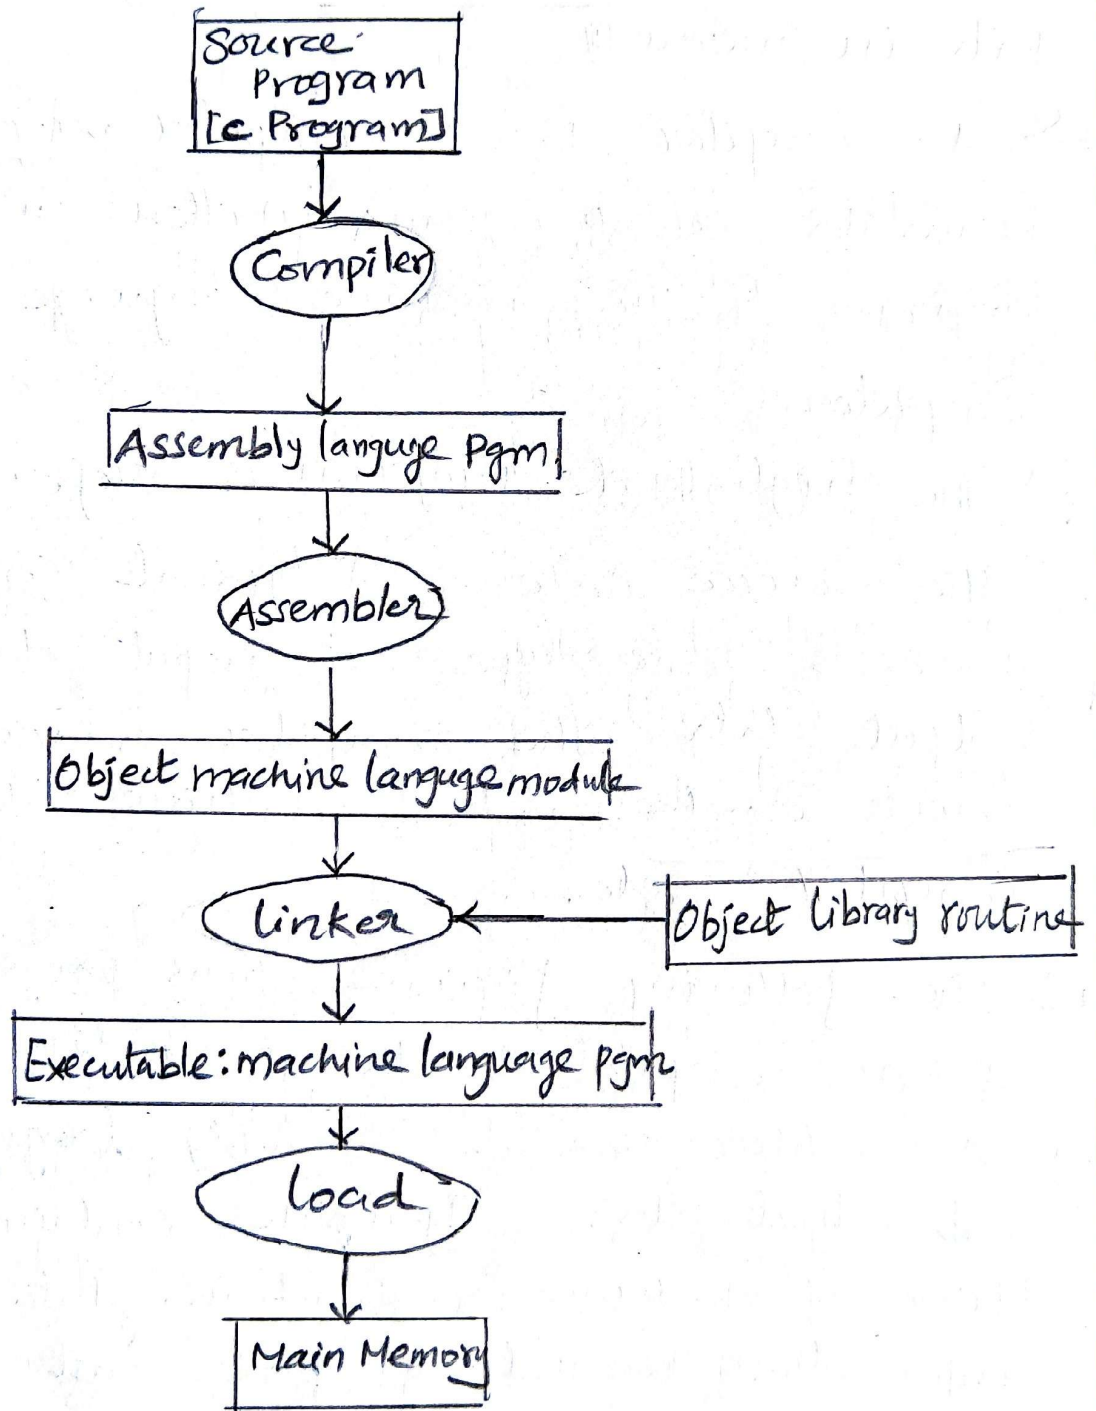 Source
Program
[C Program]
Compiler
Assembly languge Pgm
Assembler
Object machine languge module
linker
Object library routine
Executable: machine language pgm
load
Main Memory